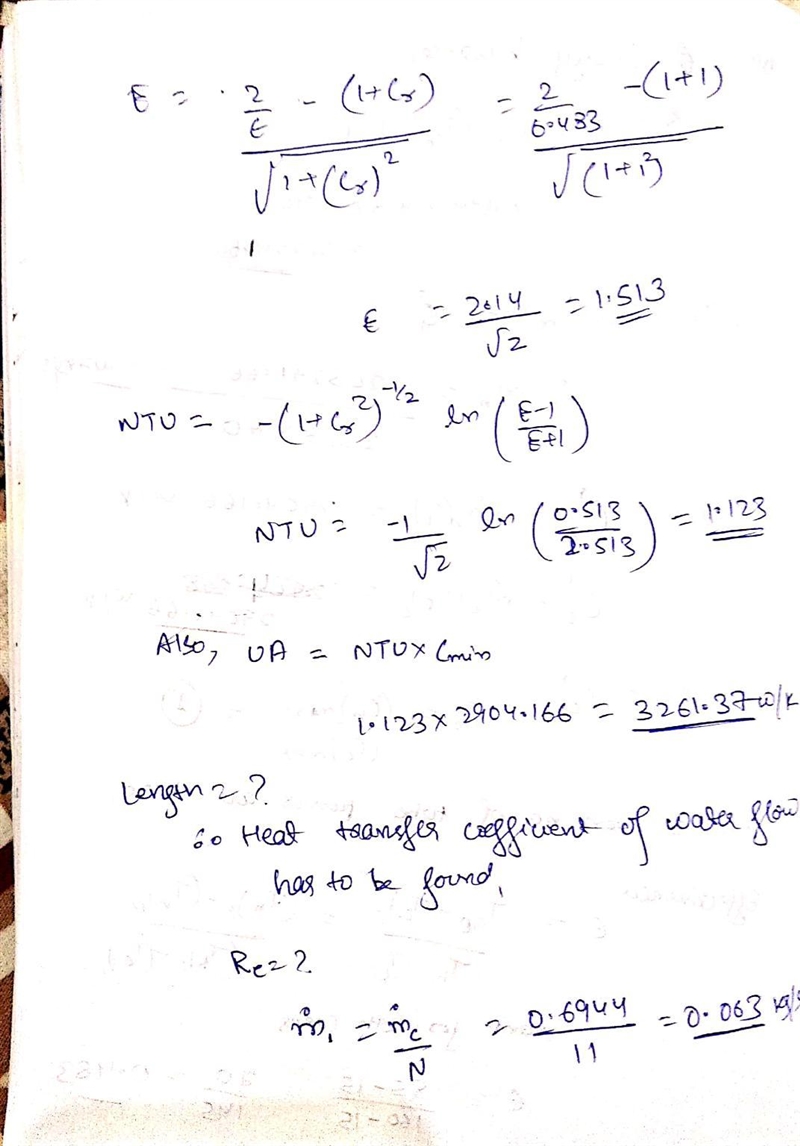 E = 2/ε - (1+Cr) / √1+(Cr)² = 2/0.483 - (1+1) / √(1+1²)
ε = 2.14/√2 = 1.513
NTU = -(1+Cr²)^-1/2 ln (E-1/E+1)
NTU = -1/√2 ln (0.513/2.513) = 1.123
Also, UA = NTU× Cmin
1.123×2904.166 = 3261.37 W/K
Length = ?
∴ Heat transfer coefficient of water flow
has to be found,
Re = ?
ṁ₁ = ṁc/N = 0.6944/11 = 0.063 kg/s